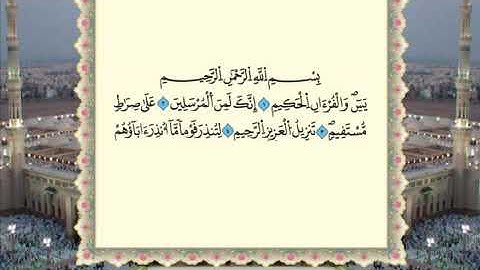 بِسْمِ ٱللَّهِ ٱلرَّحْمَٰنِ ٱلرَّحِيمِ
يسٓ وَٱلْقُرْءَانِ ٱلْحَكِيمِ ١ إِنَّكَ لَمِنَ ٱلْمُرْسَلِينَ ٢ عَلَىٰ صِرَٰطٍ
مُّسْتَقِيمٍ ٣ تَنزِيلَ ٱلْعَزِيزِ ٱلرَّحِيمِ ٤ لِتُنذِرَ قَوْمًا مَّآ أُنذِرَ ءَابَآؤُهُمْ